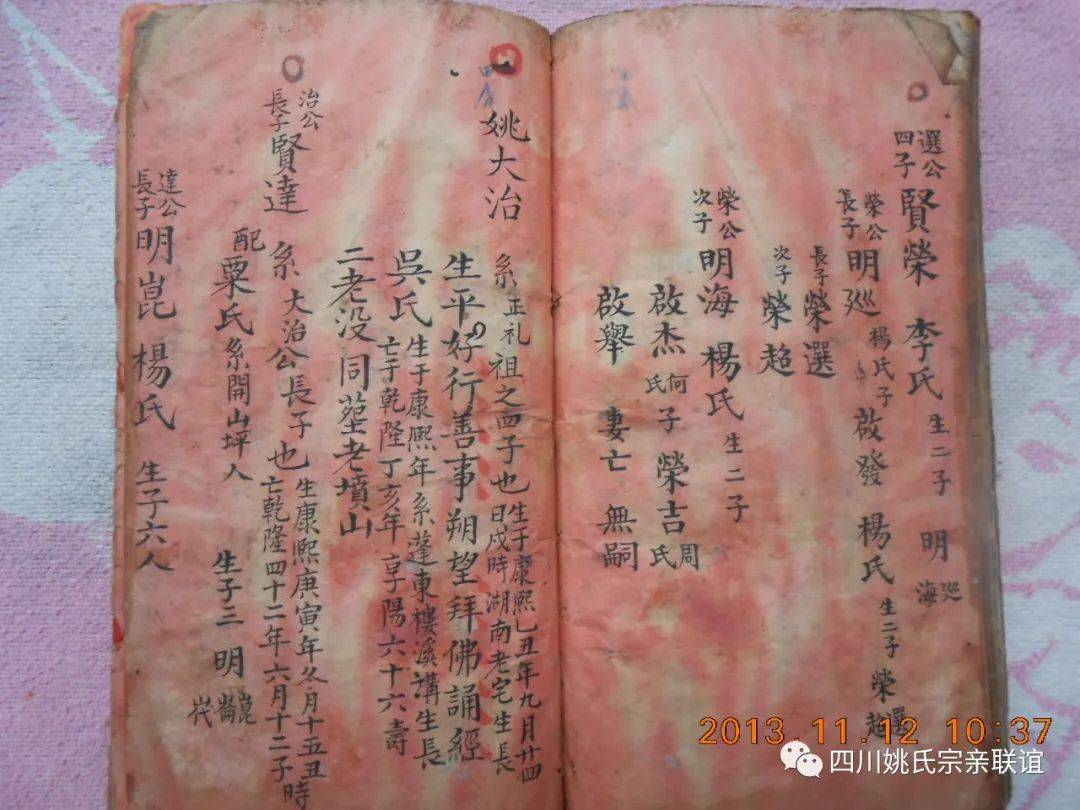 選公
四子
賢榮 李氏 生二子 明廵海
榮公
長子
明廵 楊氏子 啟發 楊氏 生二子 榮選超
長子 榮選
次子 榮超
榮公
次子
明海 楊氏 生二子
啟杰 何氏 子 榮吉 周氏
啟舉 妻亡 無嗣
姚大治
系正礼祖之四子也 生于康熙乙丑年九月廿四
日戌時湖南老宅生長
生平好行善事朔望拜佛誦經
吳氏 生于康熙年系蓬東樓溪講生長
亡于乾隆丁亥年 享陽六十六壽
二老没同塟老墳山
治公
長子
賢達
系大治公長子也 生康熙庚寅年冬月十五丑
亡乾隆四十二年六月十二子時
配粟氏系開山坪人 生子三 明崑
達公
長子
明崑 楊氏 生子六人
2013.11.12 10:37
四川姚氏宗亲联谊